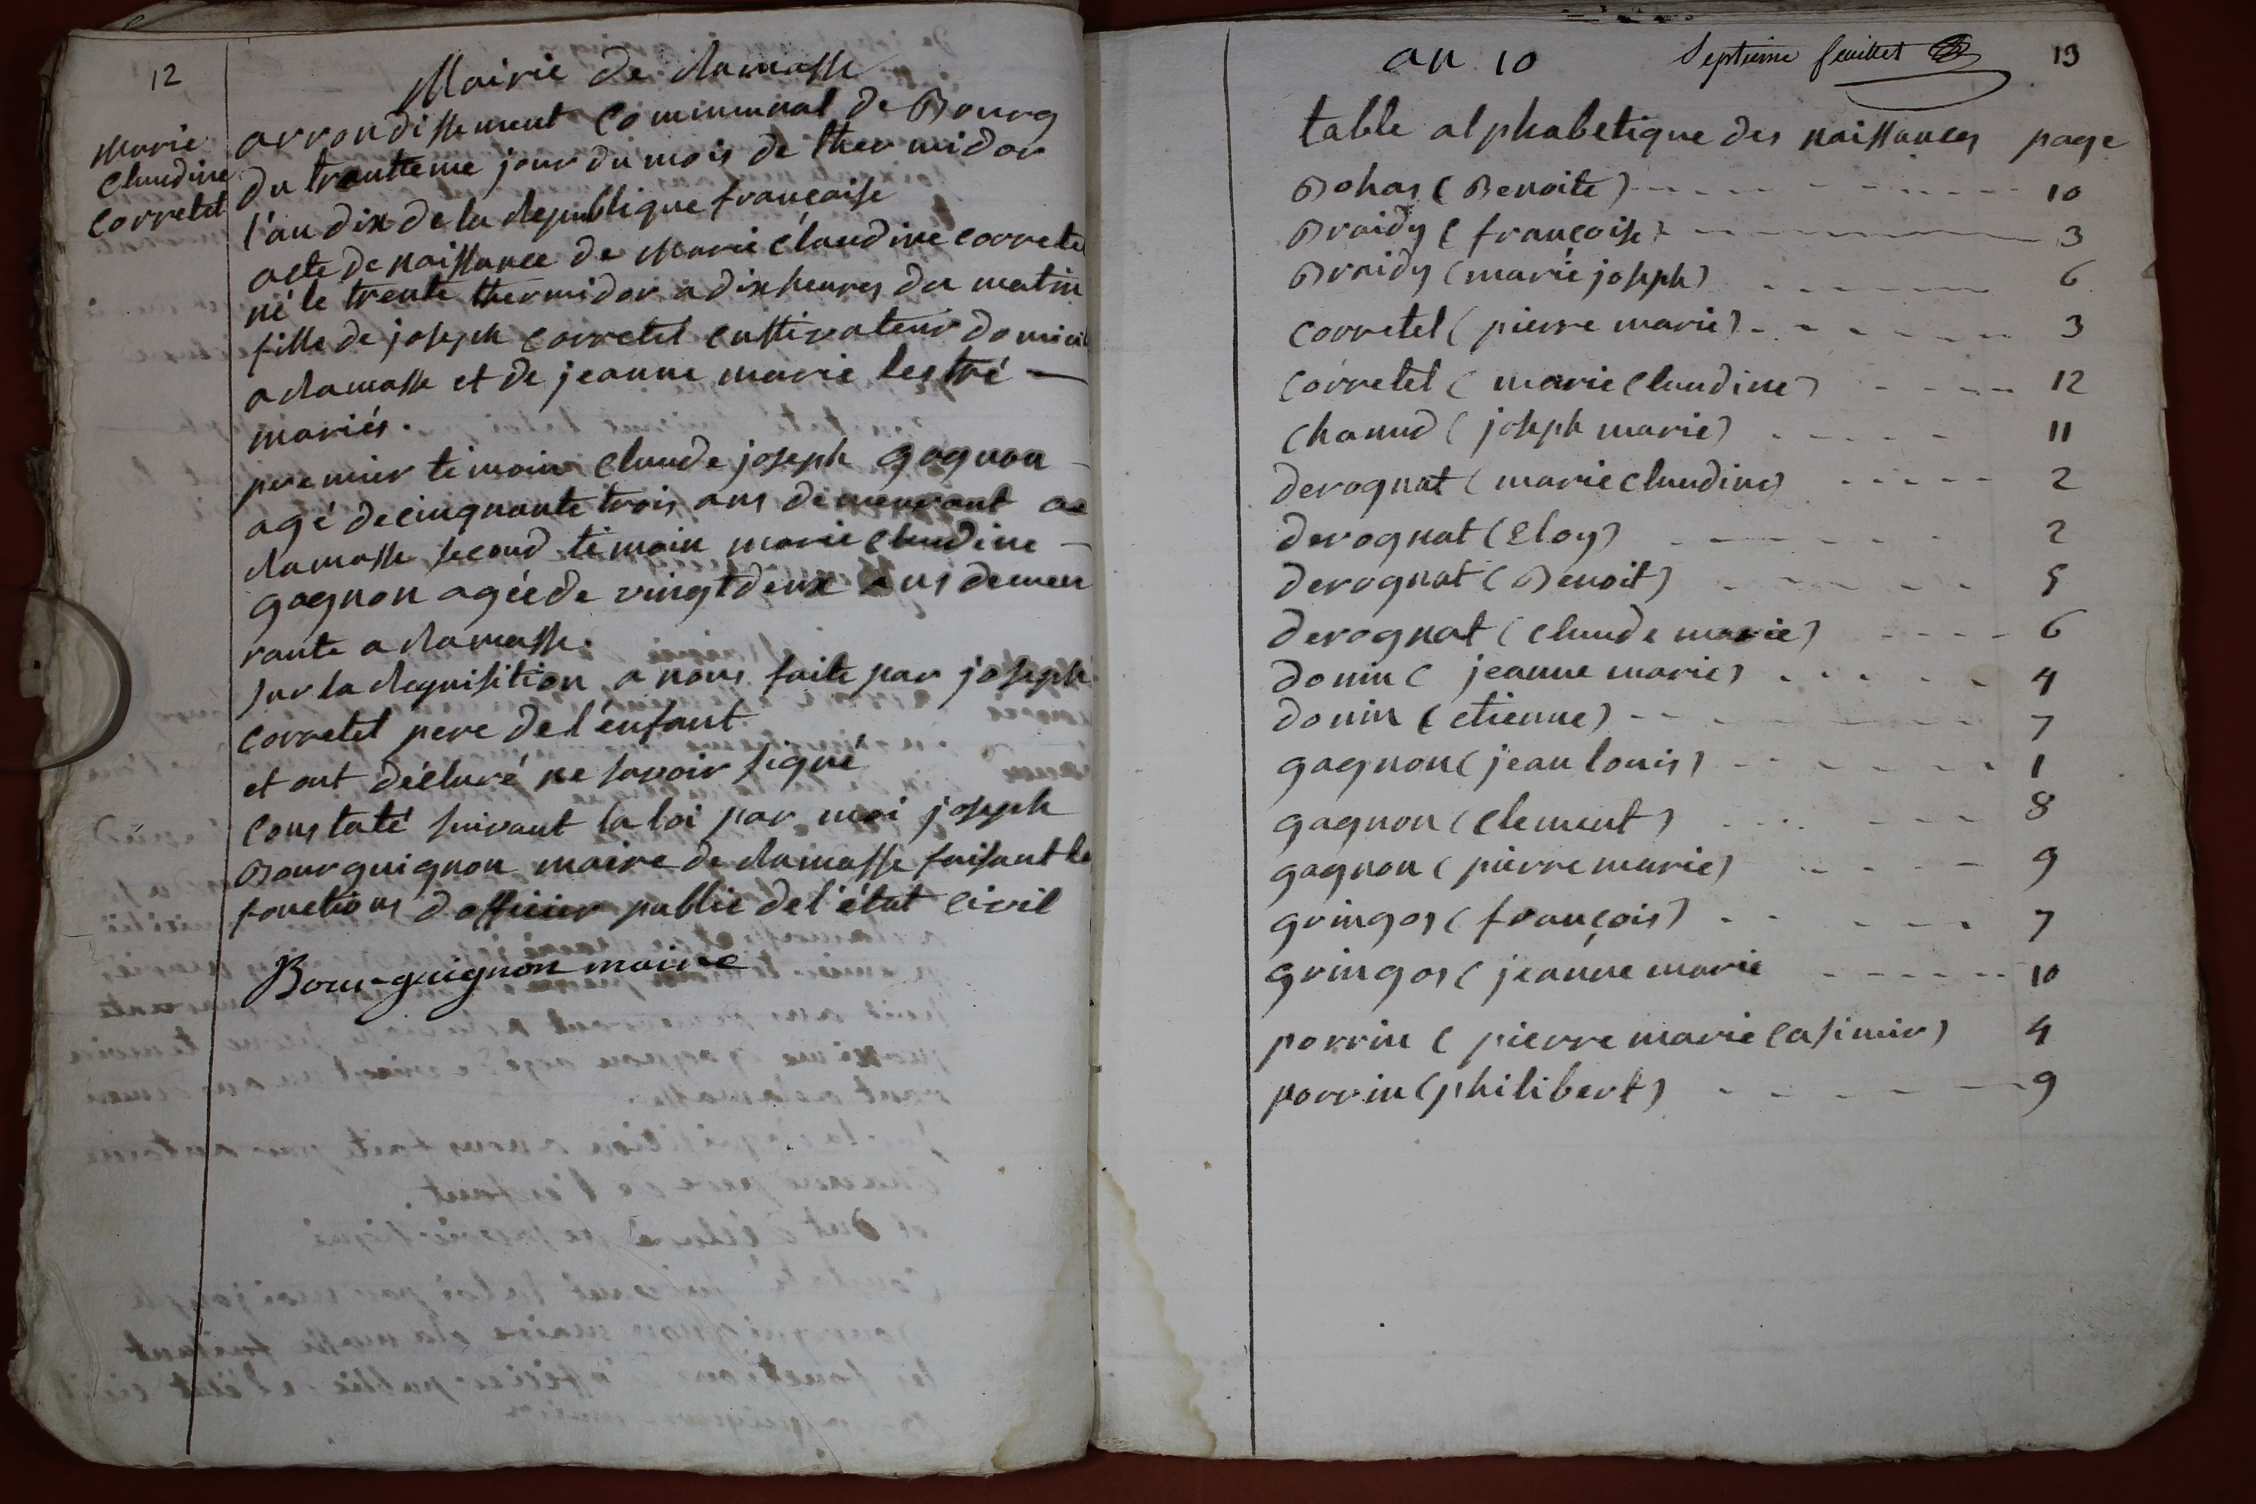 12
Mairie de Ramasse
Marie
Claudine
Corretel
arrondissement communal de Bourg
du trantieme jour du mois de thermidor
l'an dix de la Republique française
acte de naissance de Marie Claudine Corretel
né le trente thermidor a dix heures du matin
fille de joseph Corretel cultivateur domicil
a Ramasse et de jeanne marie lestré —
mariés.
premier temoin Claude joseph gagnon
agé de cinquante trois ans demeurant a
Ramasse second temoin marie Claudine
gagnon agée de vingt deux ans demeu
rante a Ramasse.
sur la Requisition a nous faite par joseph
Corretel pere de l'enfant
et ont déclaré ne savoir signé
Constaté suivant la loi par moi joseph
Bourguignon maire de Ramasse faisant le
fonctions d officier public de l'état civil
Bourguignon maire
an 10 Septieme feuillet 13
table alphabetique des naissances page
Bohas (Benoite) 10
Braidy (françoise) 3
Braidy (marie joseph) 6
Corretel (pierre marie) 3
Corretel (marie Claudine) 12
Chanud (joseph marie) 11
derognat (marie Claudine) 2
derognat (Eloy) 2
derognat (Benoit) 5
derognat (Claude marie) 6
donin (jeanne marie) 4
donin (etienne) 7
gagnon (jean louis) 1
gagnon (Clement) 8
gagnon (pierre marie) 9
gringos (françois) 7
gringos (jeanne marie 10
porrin (pierre marie Casimir) 4
porrin (philibert) 9